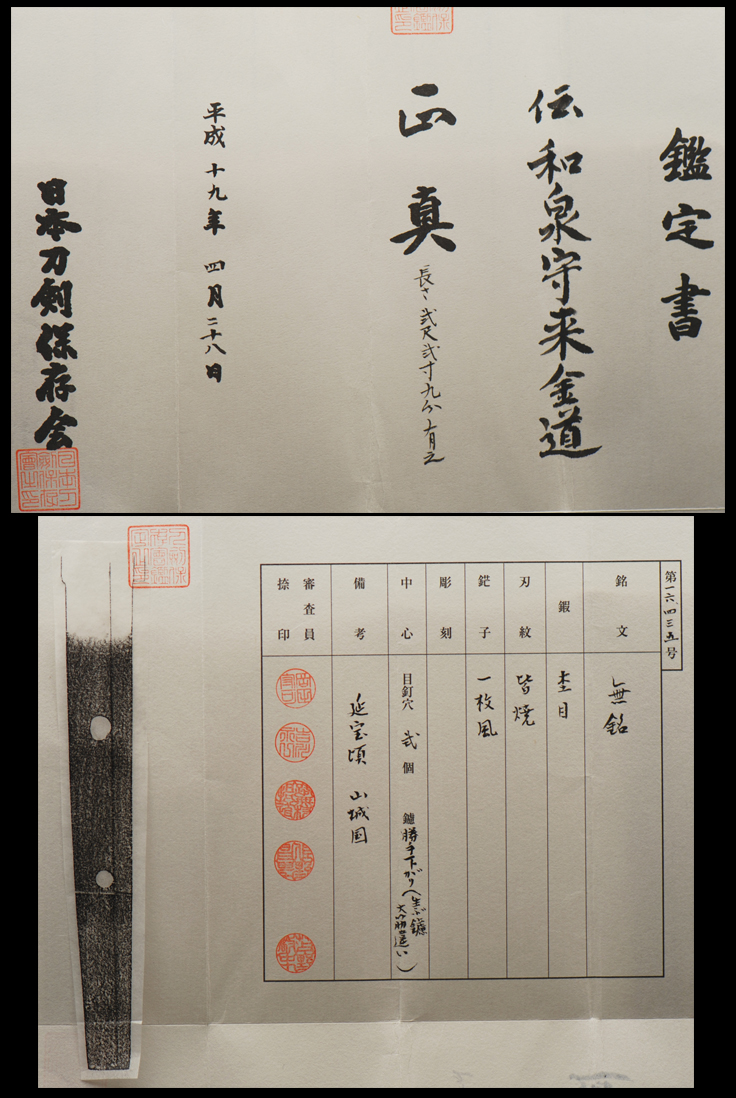 鑑定書
伝和泉守来金道
正真
長さ弐尺弐寸九分有之
平成十九年四月二十八日
日本刀剣保存会
第一六、四三五号
銘文
無銘
鍜
杢目
刃紋
皆焼
鋩子
一枚風
彫刻
中心
目釘穴 弐個
鑢 勝手下がり
備考
延宝頃 山城国
審査員
捺印